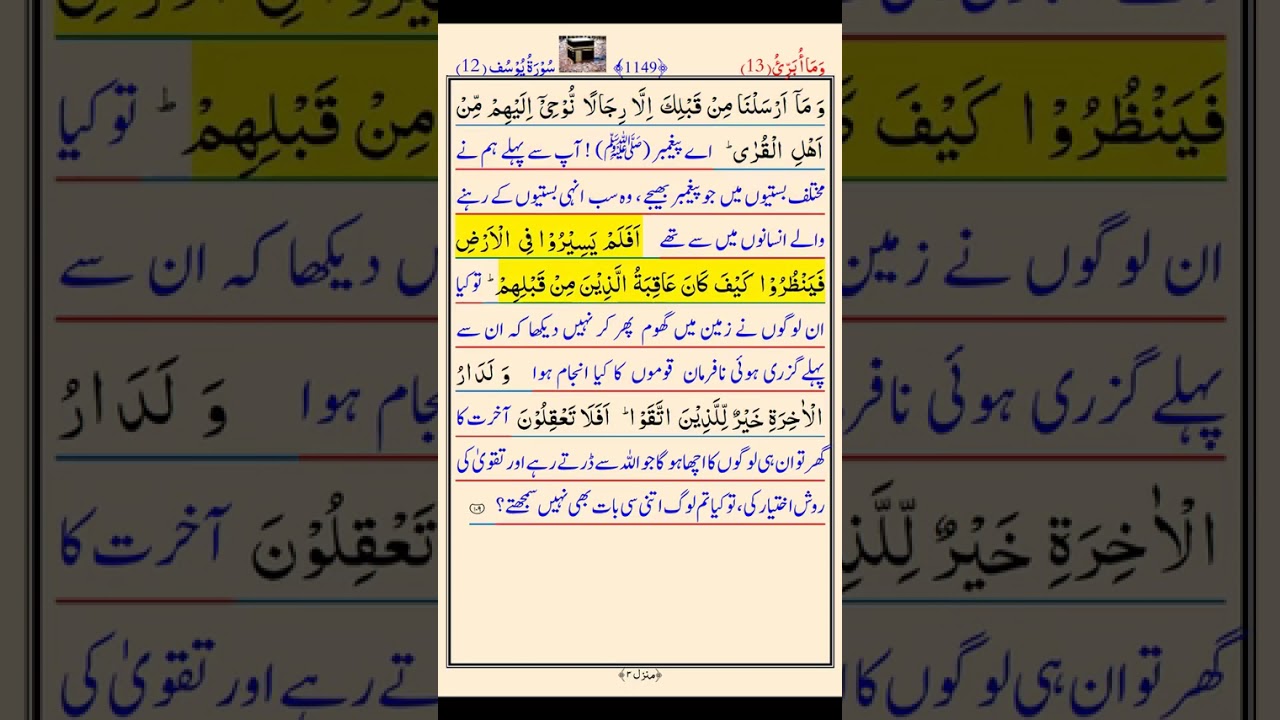 وَمَاۤ اُبَرِّئُ (13) ﴿1149﴾ سُوْرَةُ يُوْسُف (12)
وَ مَاۤ اَرْسَلْنَا مِنْ قَبْلِكَ اِلَّا رِجَالًا نُّوْحِیْۤ اِلَیْهِمْ مِّنْ
اَهْلِ الْقُرٰی ؕ اے پیغمبر (ﷺ)! آپ سے پہلے ہم نے
مختلف بستیوں میں جو پیغمبر بھیجے، وہ سب انہی بستیوں کے رہنے
والے انسانوں میں سے تھے اَفَلَمْ یَسِیْرُوْا فِی الْاَرْضِ
فَیَنْظُرُوْا كَیْفَ كَانَ عَاقِبَةُ الَّذِیْنَ مِنْ قَبْلِهِمْ ؕ تو کیا
ان لوگوں نے زمین میں گھوم پھر کر نہیں دیکھا کہ ان سے
پہلے گزری ہوئی نافرمان قوموں کا کیا انجام ہوا وَ لَدَارُ
الْاٰخِرَةِ خَیْرٌ لِّلَّذِیْنَ اتَّقَوْا ؕ اَفَلَا تَعْقِلُوْنَ آخرت کا
گھر تو ان ہی لوگوں کا اچھا ہو گا جو اللہ سے ڈرتے رہے اور تقویٰ کی
روش اختیار کی، تو کیا تم لوگ اتنی سی بات بھی نہیں سمجھتے؟ ۱۰۹
﴿منزل ۳﴾